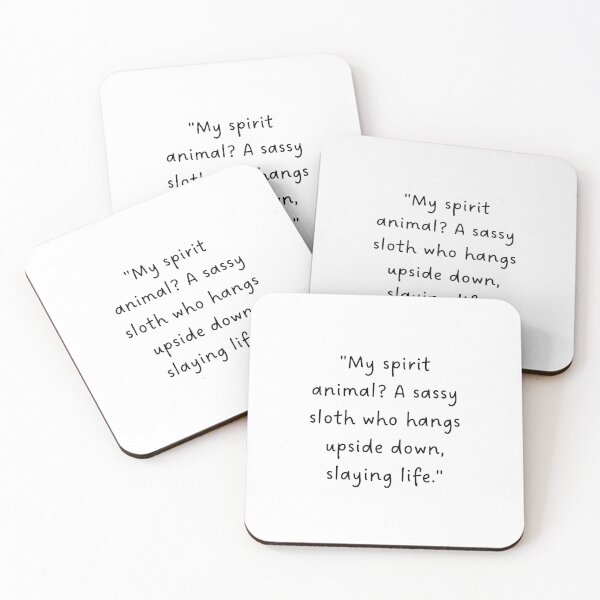 "My spirit
animal? A sassy
hangs
"My spirit
animal? A sassy
sloth who hangs
upside down,
"My spirit
animal? A sassy
sloth who hangs
upside down
slaying
"My spirit
animal? A sassy
sloth who hangs
upside down,
slaying life."